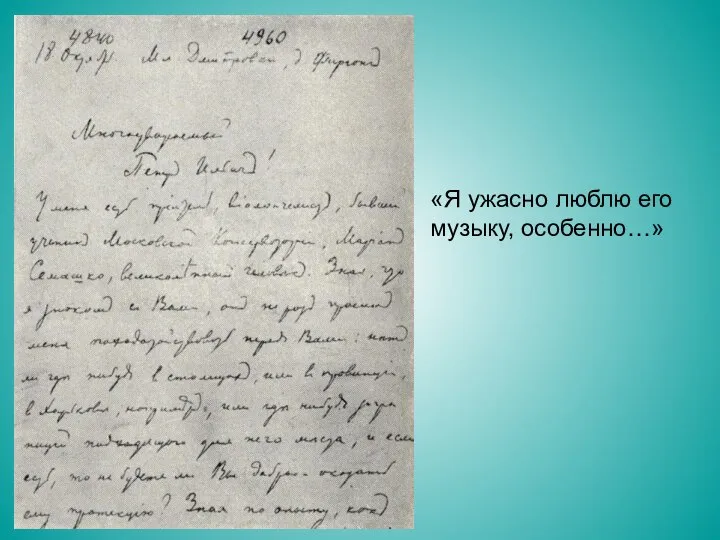 4840 4960
18 Октяб. М. Дмитровка, д. Фирганг
Многоуважаемый
Петр Ильич!
У меня есть приятель, виолончелист, бывший
ученик Московской Консерватории, Мариан
Семашко, великолепный человек. Зная, что
я знаком с Вами, он не раз просил
меня походатайствовать перед Вами: нет
ли где нибудь в столицах, или в провинции,
в Харькове, например, или где нибудь
подходящего для него места, и если
есть, то не будете ли Вы добры оказать
ему протекцию? Зная по опыту, как
«Я ужасно люблю его
музыку, особенно…»